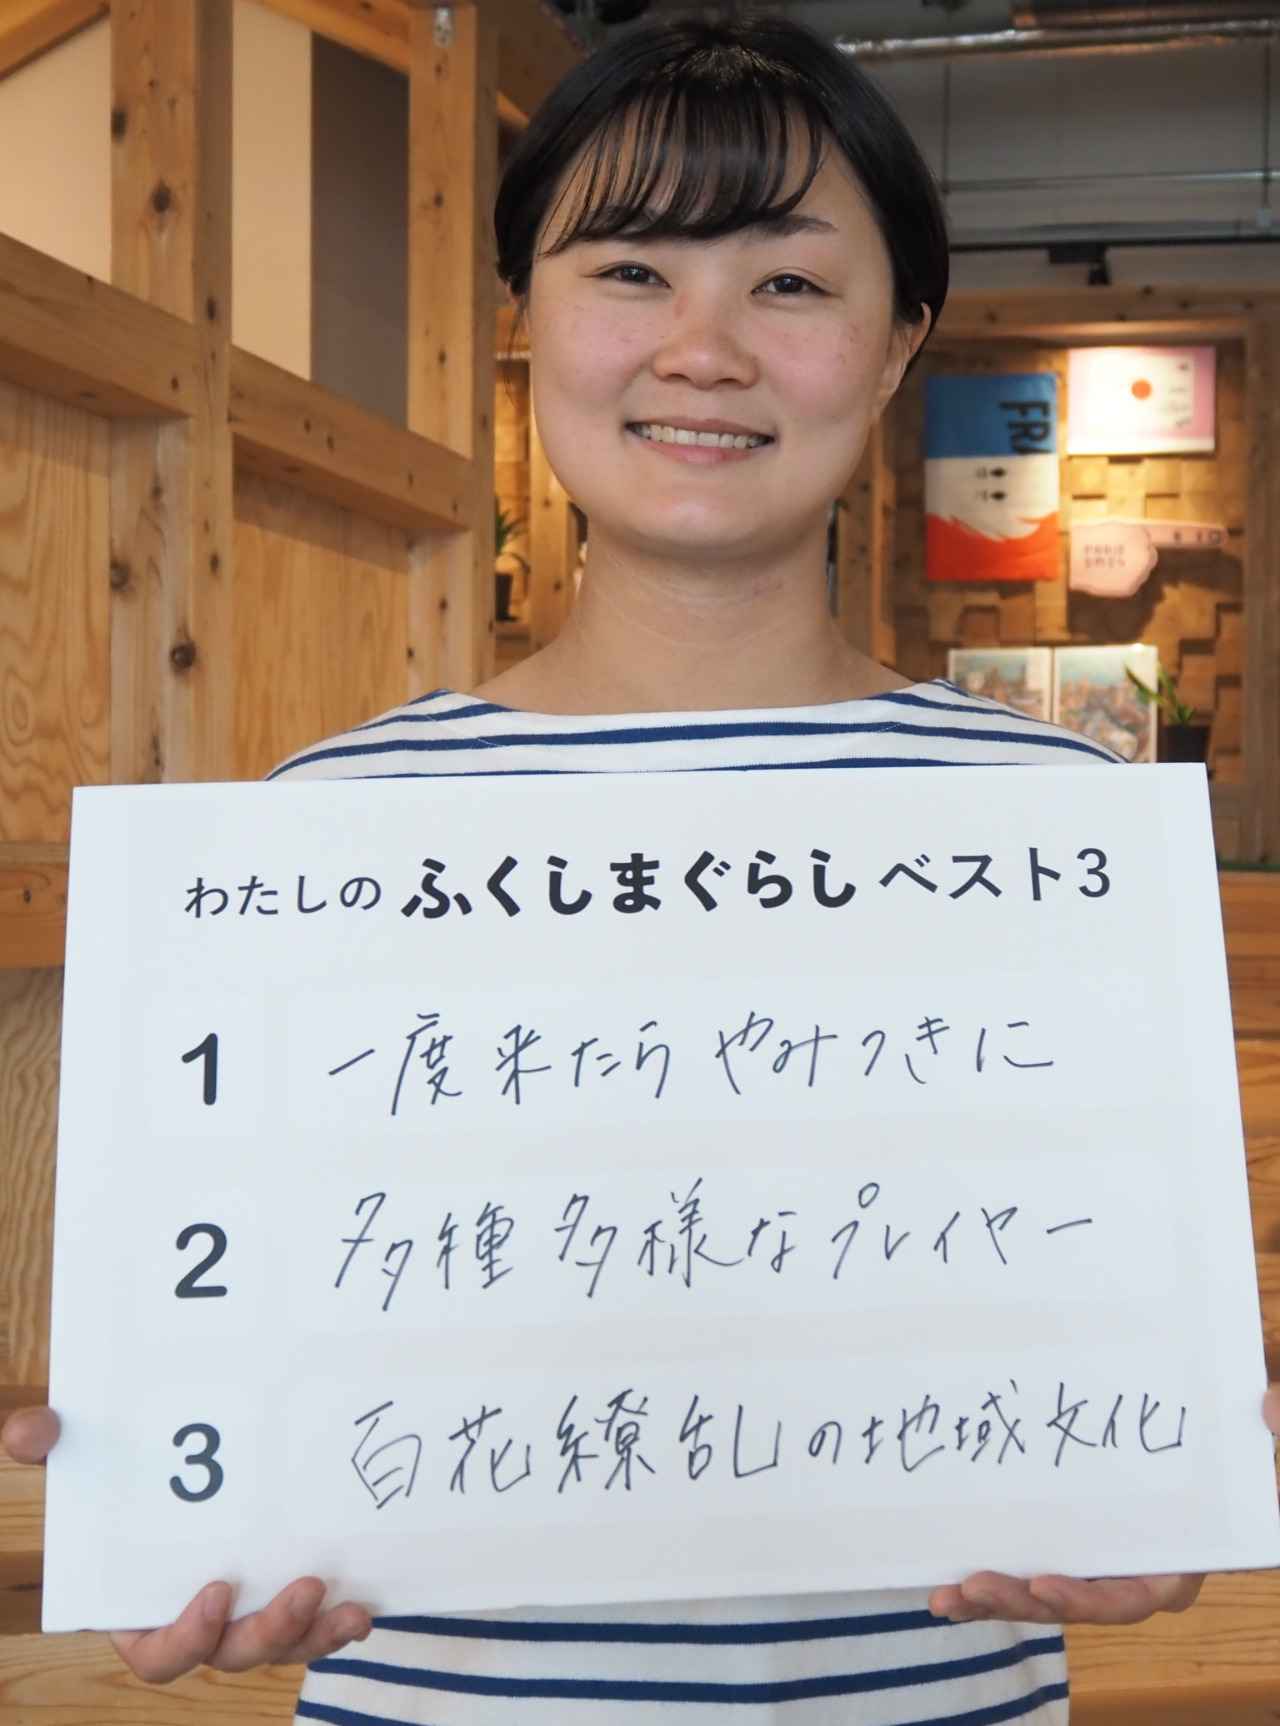 FRA
PARIS
2024
わたしの ふくしまぐらし ベスト3
1 一度来たらやみつきに
2 多種多様なプレイヤー
3 百花繚乱の地域文化